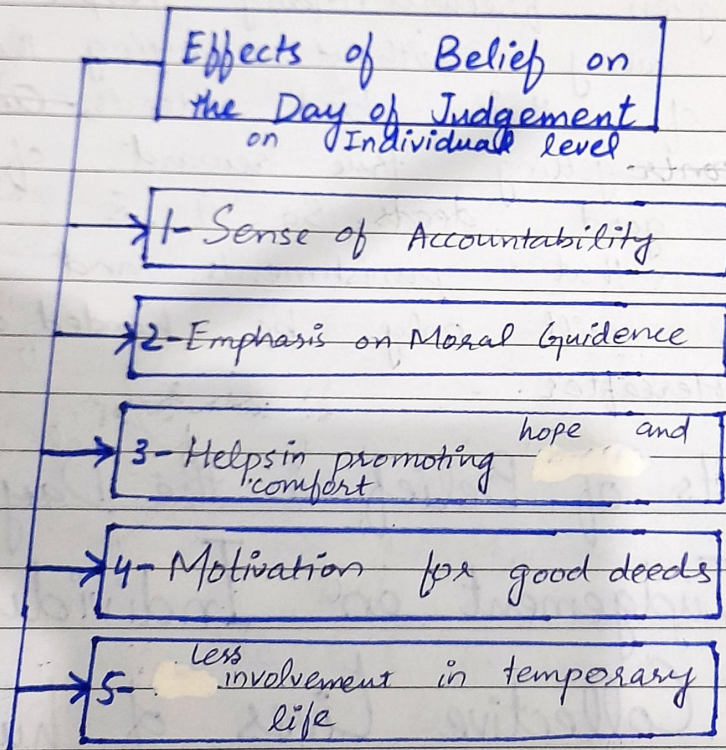 Effects of Belief on
the Day of Judgement
on Individual level
1- Sense of Accountability
2- Emphasis on Moral Guidence
hope and
3- Helps in promoting
comfort
4- Motivation for good deeds
less
5- involvement in temporary
life